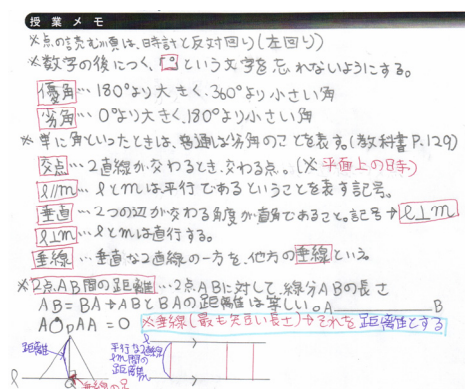 授業メモ
※点の読む順は、時計と反対回り(左回り)
※数字の後につく、「°」という文字を忘れないようにする。
優角…180°より大きく、360°より小さい角
劣角…0°より大きく、180°より小さい角
※単に角といったときは、普通は劣角のことを表す。(教科書P.129)
交点…2直線が交わるとき、交わる点。(※平面上の時)
l//m…lとmは平行であるということを表す記号。
垂直…2つの辺が交わる角度が直角であること。記号→l⊥m
l⊥m…lとmは直行する。
垂線…垂直な2直線の一方を、他方の垂線という。
※2点AB間の距離…2点ABに対して、線分ABの長さ
AB=BA→ABとBAの距離は等しい。A B
AAA=0 ※垂線(最も短い長さ)それを距離とする
距離 平行な2直線 l
l m間の
距離 m